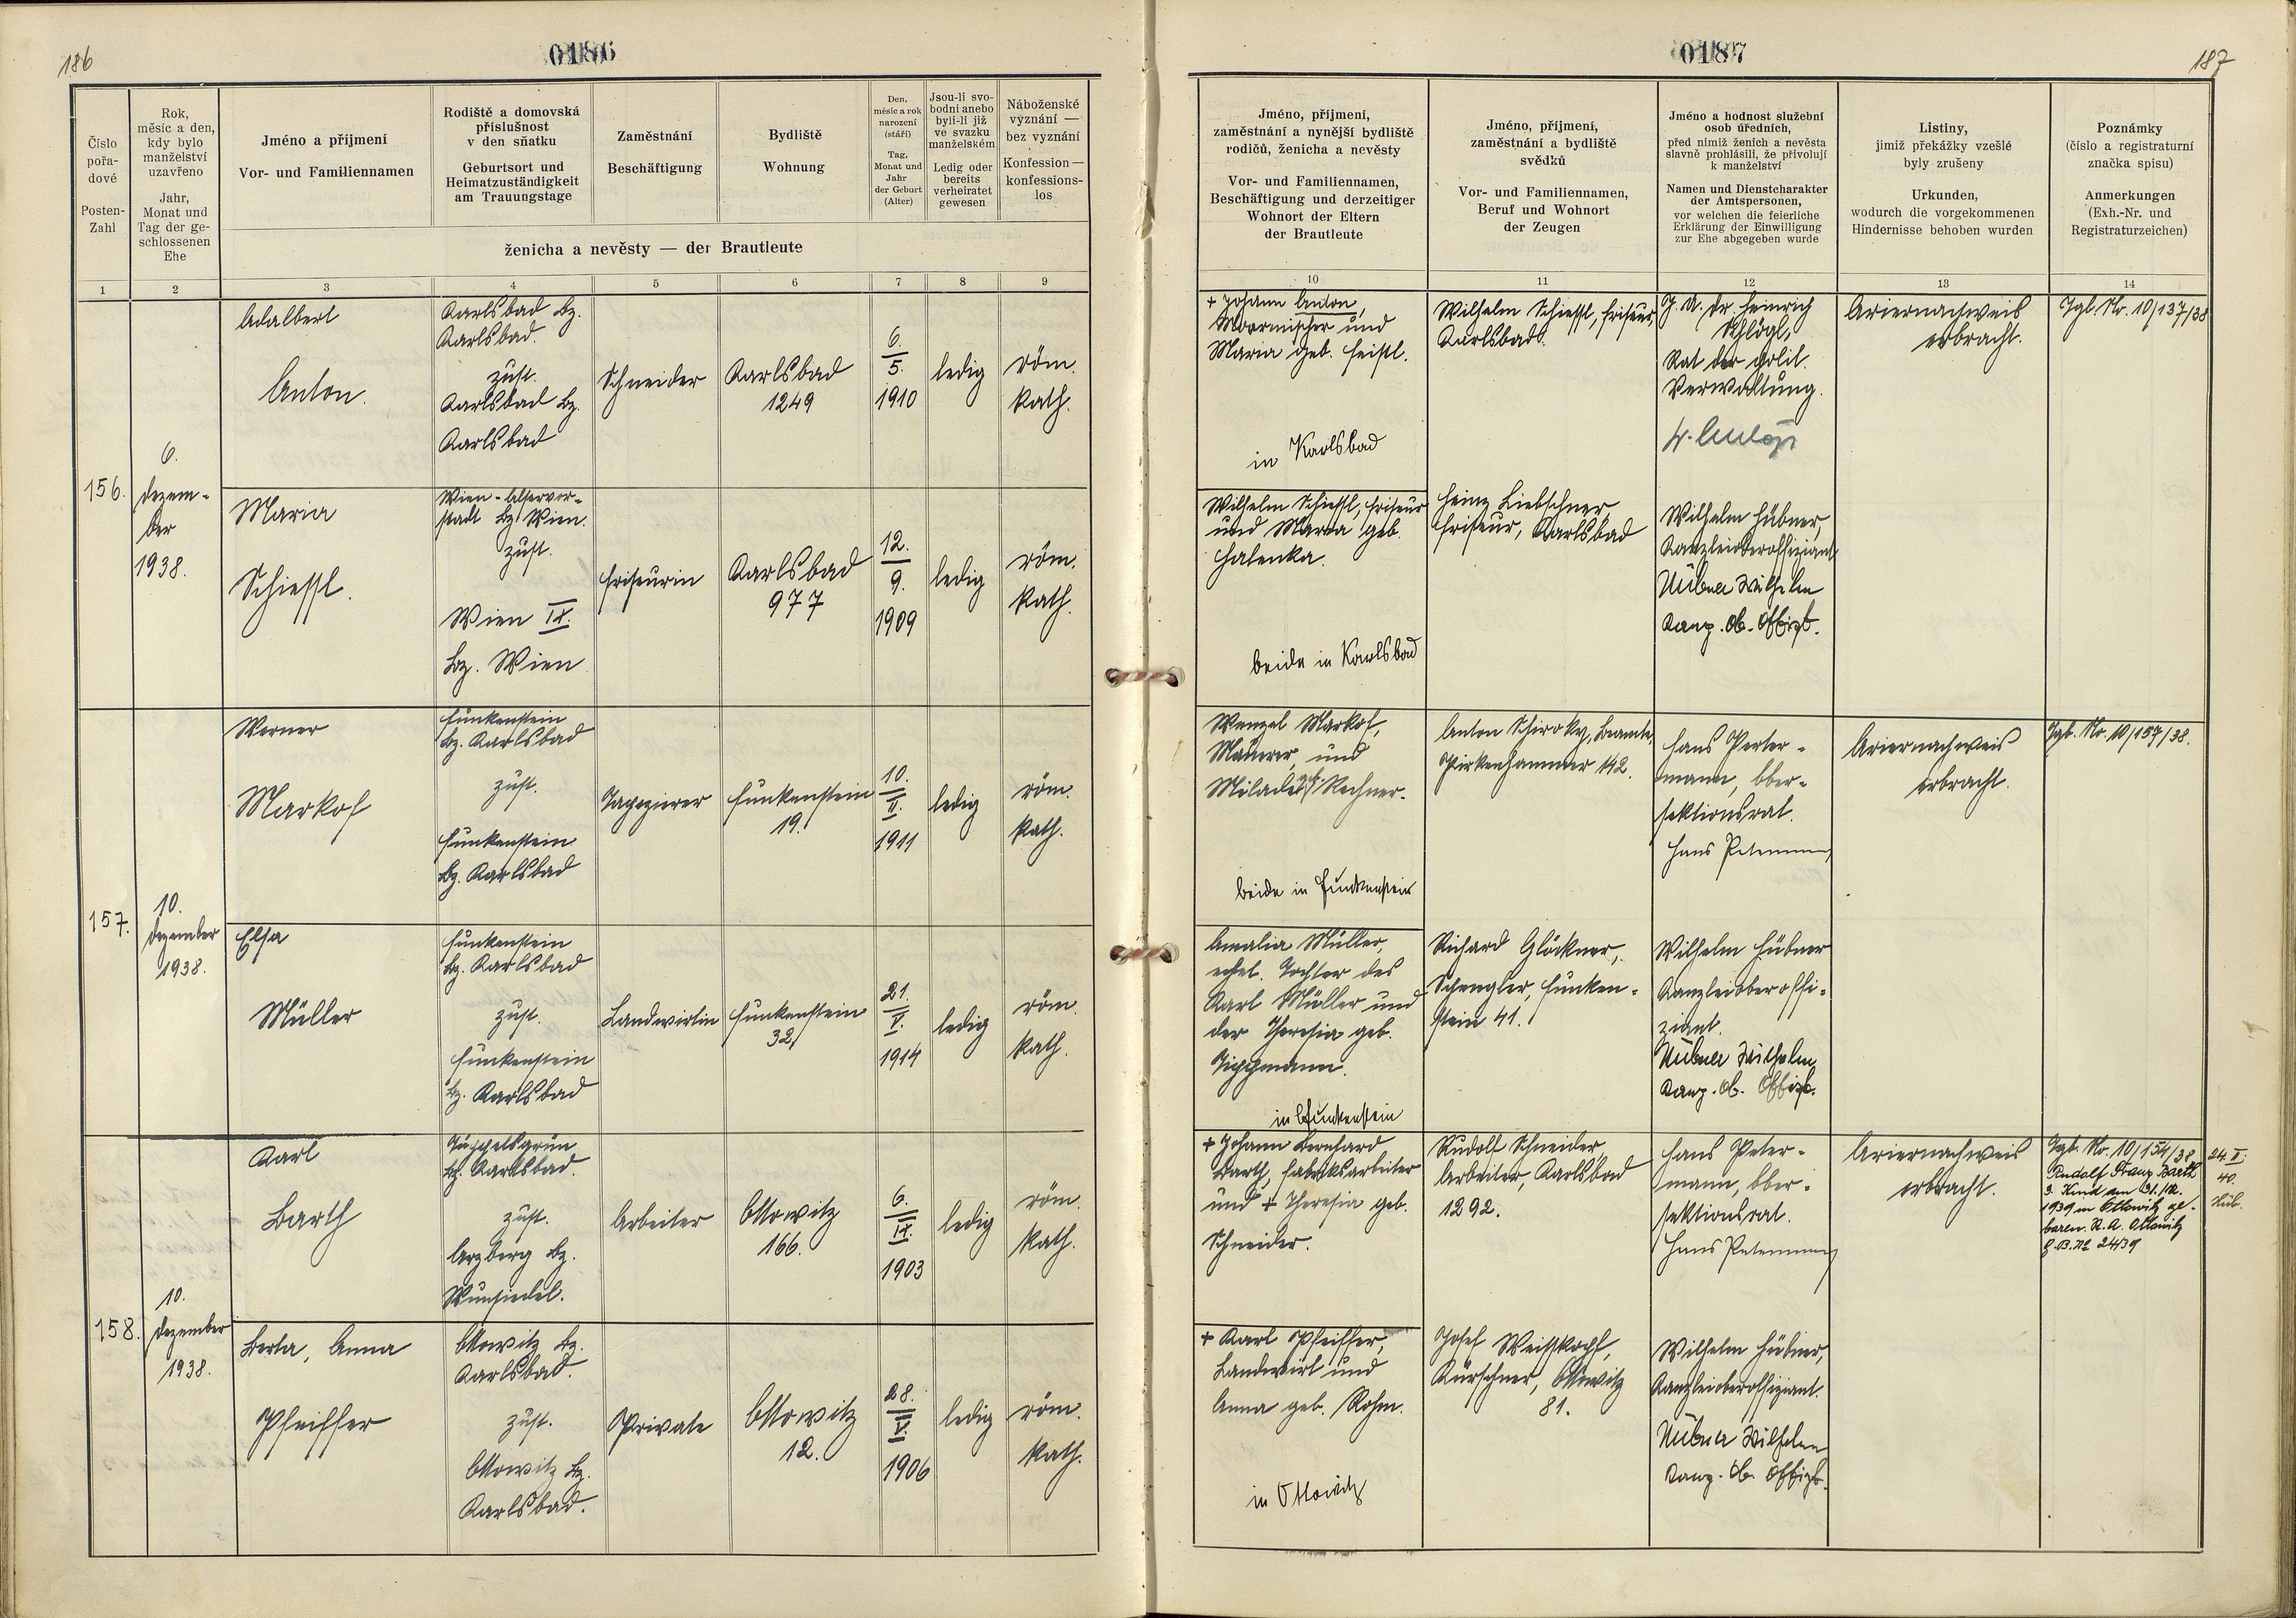 186
0186
Číslo
pořa-
dové
Posten-
Zahl
Rok,
měsíc a den,
kdy bylo
manželství
uzavřeno
Jahr,
Monat und
Tag der ge-
schlossenen
Ehe
Jméno a příjmení
Vor- und Familiennamen
Rodiště a domovská
příslušnost
v den sňatku
Geburtsort und
Heimatzuständigkeit
am Trauungstage
Zaměstnání
Beschäftigung
Bydliště
Wohnung
Den,
měsíc a rok
narození
(stáří)
Tag,
Monat und
Jahr
der Geburt
(Alter)
Jsou-li svo-
bodni anebo
byli-li již
ve svazku
manželském
Ledig oder
bereits
verheiratet
gewesen
Náboženské
vyznání —
bez vyznání
Konfession —
konfessions-
los
ženicha a nevěsty — der Brautleute
1 2 3 4 5 6 7 8 9
156.
6.
Dezem-
ber
1938.
Adalbert
Anton.
Karlsbad Bz.
Karlsbad.
zust.
Karlsbad Bz.
Karlsbad
Schneider
Karlsbad
1249
6.
5.
1910
ledig
röm.
kath.
Maria
Schiessl.
Wien-Alservor-
stadt Bz. Wien.
zust.
Wien IX.
Bz. Wien
Friseurin
Karlsbad
977
12.
9.
1909
ledig
röm.
kath.
157.
10.
Dezember
1938.
Werner
Markof
Funkenstein
Bz. Karlsbad
zust.
Funkenstein
Bz. Karlsbad
Tapezierer
Funkenstein
19.
10.
II.
1911
ledig
röm.
kath.
Elsa
Müller
Funkenstein
Bz. Karlsbad
zust.
Funkenstein
Bz. Karlsbad
Landwirtin
Funkenstein
32
21.
V.
1914
ledig
röm.
kath.
158.
10.
Dezember
1938.
Karl
Barth
Tüppelsgrün
Bz. Karlsbad.
zust.
Arzberg Bz.
Wunsiedel.
Arbeiter
Ottowitz
166.
6.
IX.
1903
ledig
röm.
kath.
Berta, Anna
Pfeiffer
Ottowitz Bz.
Karlsbad.
zust.
Ottowitz Bz.
Karlsbad.
Private
Ottowitz
12.
28.
V.
1906
ledig
röm.
kath.
0187
187
Jméno, příjmení,
zaměstnání a nynější bydliště
rodičů, ženicha a nevěsty
Vor- und Familiennamen,
Beschäftigung und derzeitiger
Wohnort der Eltern
der Brautleute
Jméno, příjmení,
zaměstnání a bydliště
svědků
Vor- und Familiennamen,
Beruf und Wohnort
der Zeugen
Jméno a hodnost služební
osob úředních,
před nimiž ženich a nevěsta
slavně prohlásili, že přivolují
k manželství
Namen und Dienstcharakter
der Amtspersonen,
vor welchen die feierliche
Erklärung der Einwilligung
zur Ehe abgegeben wurde
Listiny,
jimiž překážky vzešlé
byly zrušeny
Urkunden,
wodurch die vorgekommenen
Hindernisse behoben wurden
Poznámky
(číslo a registraturní
značka spisu)
Anmerkungen
(Exh.-Nr. und
Registraturzeichen)
10 11 12 13 14
+ Johann Anton,
Moormischer und
Maria geb. Feistl.
in Karlsbad
Wilhelm Schiessl, Friseur,
Karlsbad.
J. U. Dr. Heinrich
Schlögl,
Rat der polit.
Verwaltung.
Ariernachweis
erbracht.
Zgl. Nr. 10/137/38
Wilhelm Schiessl, Friseur
und Maria geb.
Halenka.
beide in Karlsbad
Heinz Liebschner,
Friseur, Karlsbad
Wilhelm Hübner,
Kanzleioberoffiziant
Hübner Wilhelm
Kanz. Ob. Offizt.
Wenzel Markof,
Maurer, und
Milada Rechner.
beide in Funkenstein
Anton Schiroky, Beamte,
Pirkenhammer 142.
Hans Peter-
mann, Ober-
sektionsrat.
Hans Petermann
Ariernachweis
erbracht.
Zgl. Nr. 10/157/38.
Amalia Müller,
ehel. Tochter des
Karl Müller und
der Theresia geb.
Tippmann.
in Funkenstein
Richard Glöckner,
Spengler, Funken-
stein 41.
Wilhelm Hübner
Kanzleioberoffi-
ziant.
Hübner Wilhelm
Kanz. Ob. Offizt.
+ Johann Bernhard
Barth, Fabriksarbeiter
und + Theresia geb.
Schneider.
Rudolf Schneider,
Arbeiter, Karlsbad
1292.
Hans Peter-
mann, Ober-
sektionsrat.
Hans Petermann
Ariernachweis
erbracht.
Zgl. Nr. 10/154/38
Rudolf Franz Barth
3. Kind am 31./12.
1939 in Ottowitz ge-
boren. St. A. Ottowitz
G. B. No 24/39
24. II.
40.
Hüb.
+ Karl Pfeiffer,
Landwirt und
Anna geb. Rohm.
in Ottowitz
Josef Weisskopf,
Kürschner, Ottowitz
81.
Wilhelm Hübner,
Kanzleioberoffiziant.
Hübner Wilhelm
Kanz. Ob. Offizt.